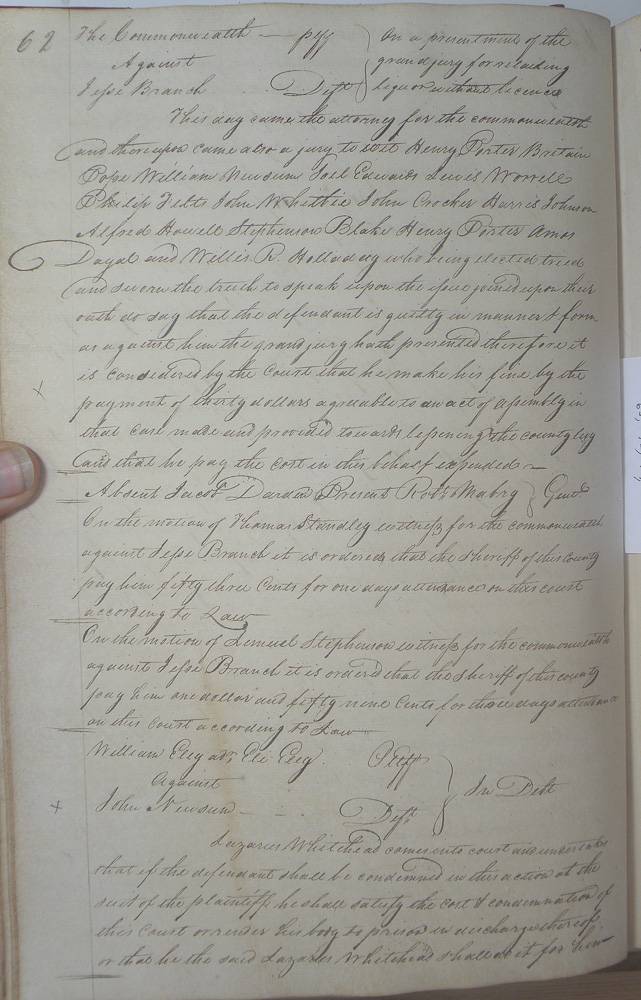 62
The Commonwealth — plff } On a presentment of the
Against grandjury for retailing
Jesse Branch . . Deft } liquor without licence
This day came the attorney for the commonwealth
and thereupon came also a jury to wit Henry Porter Britain
Pope William Newsum Joel Edwards Lewis Worrell
Philip Felts John Whitbie John Crocker Harris Johnson
Alfred Howell Stephenson Blake Henry Porter Amos
Dayal and Willis R. Holladay who being elected tried
and sworn the truth to speak upon the issue joined upon their
oath do say that the defendant is guilty in manner & form
as against him the grandjury hath presented therefore it
is considered by the Court that he make his fine by the
payment of thirty dollars agreeable to an act of assembly in
that case made and provided towards lessening the county levy
and that he pay the cost in this behalf expended —
Absent Jacob Darden Present Robt. Mabry } Gent
On the motion of Thomas Standley witness for the commonwealth
against Jesse Branch it is ordered that the sheriff of this county
pay him fifty three Cents for one days attendance on this court
according to Law
On the motion of Lemuel Stephenson witness for the commonwealth
against Jesse Branch it is ordered that the sheriff of this county
pay him one dollar and fifty nine Cents for three days attendance
on this court according to Law
William Eley adr. Eli Eley . Pltff }
Against } In Debt
John Newsum — . . — Deft }
Lazarus Whitehead comes into court and undertakes
that if the defendant shall be condemned in this action at the
suit of the plaintiff he shall satisfy the cost & condemnation of
this Court or render his body to prison in discharge thereof
or that he the said Lazarus Whitehead shall do it for him